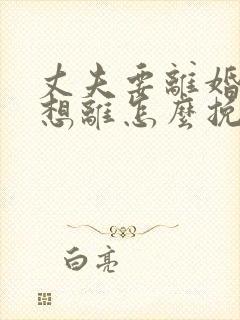 丈夫要離婚
想離怎麼挽
白亮